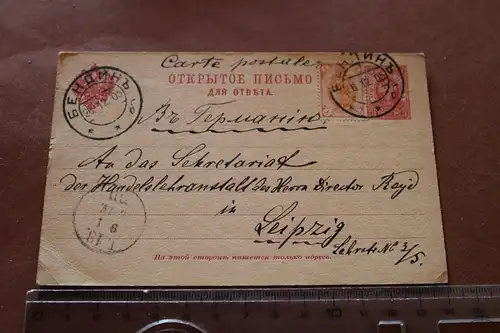 Carte postale
ОТКРЫТОЕ ПИСЬМО
ДЛЯ ОТВѢТА.
БЕНДИНЪ
БЕНДИНЪ
Въ Германію.
An das Sekretariat
der Handelslehranstalt des Herrn Director Reyd
in
Leipzig
Lehrstr. № 3/5.
На этой сторонѣ пишется только адресъ.